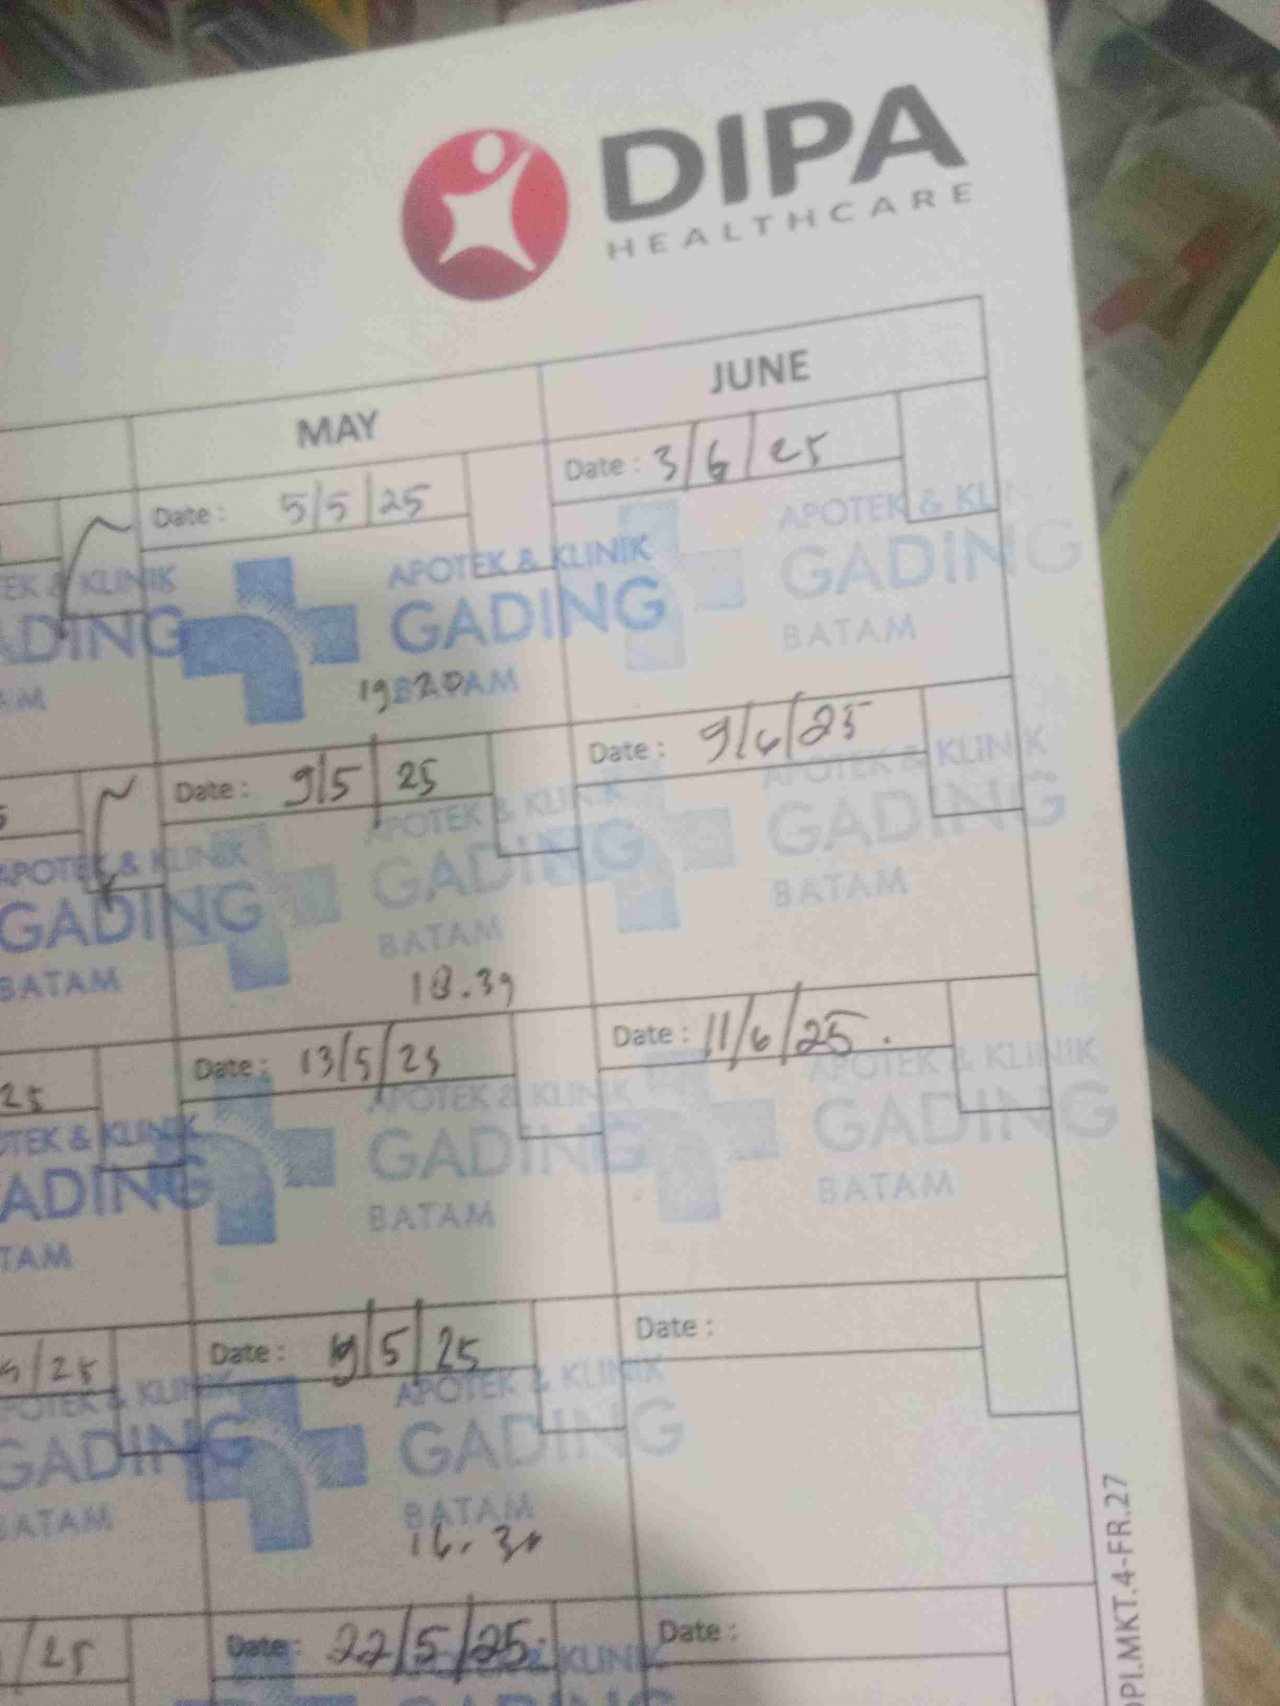 DIPA
HEALTHCARE
MAY
JUNE
Date : 5/5/25
Date : 3/6/25
EK & KLINIK
ADING
AM
APOTEK & KLINIK
GADING
AM
19 20
APOTEK & KL
GADING
BATAM
Date : 9/5/25
Date : 9/6/25
APOTEK & KLINIK
GADING
BATAM
APOTEK & KLINIK
GADING
BATAM
18.39
APOTEK & KLINIK
GADING
BATAM
25
Date : 13/5/25
Date : 11/6/25.
OTEK & KLINIK
ADING
TAM
APOTEK & KLINIK
GADING
BATAM
APOTEK & KLINIK
GADING
BATAM
/25
Date : 19/5/25
Date :
POTEK & KLINIK
GADING
BATAM
APOTEK & KLINIK
GADING
BATAM
16.30
/25
Date : 22/5/25.
KLINIK
Date :
DPI.MKT.4-FR.27